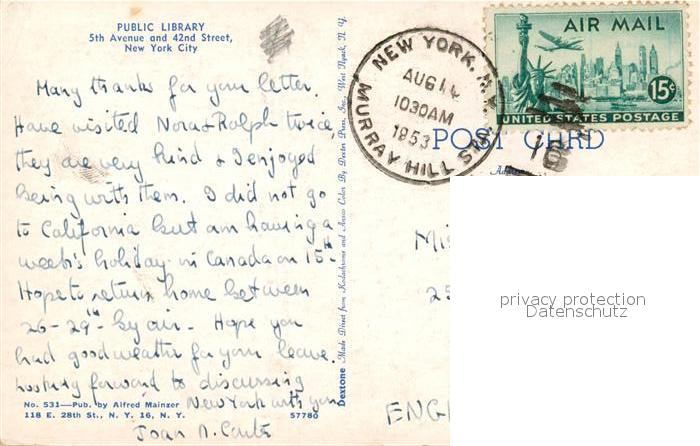 PUBLIC LIBRARY
5th Avenue and 42nd Street,
New York City
Many thanks for your letter.
Have visited Nora & Ralph twice,
they are very kind & I enjoyed
being with them. I did not go
to California but am having a
week's holiday in Canada on 15th.
Hope to return home between
26-29th by air - Hope you
had good weather for your leave.
Looking forward to discussing
New York with you
Joan
No. 531—Pub. by Alfred Mainzer
118 E. 28th St., N. Y. 16, N. Y.
57780
Dextone Made Direct from Kodachrome and Ansco Color By Dexter Press, Inc., West Nyack, N. Y.
NEW YORK, N.Y.
AUG 14
1030AM
1953
MURRAY HILL STA
AIR MAIL
15¢
UNITED STATES POSTAGE
POST CARD
Mi
25
ENG
privacy protection
Datenschutz